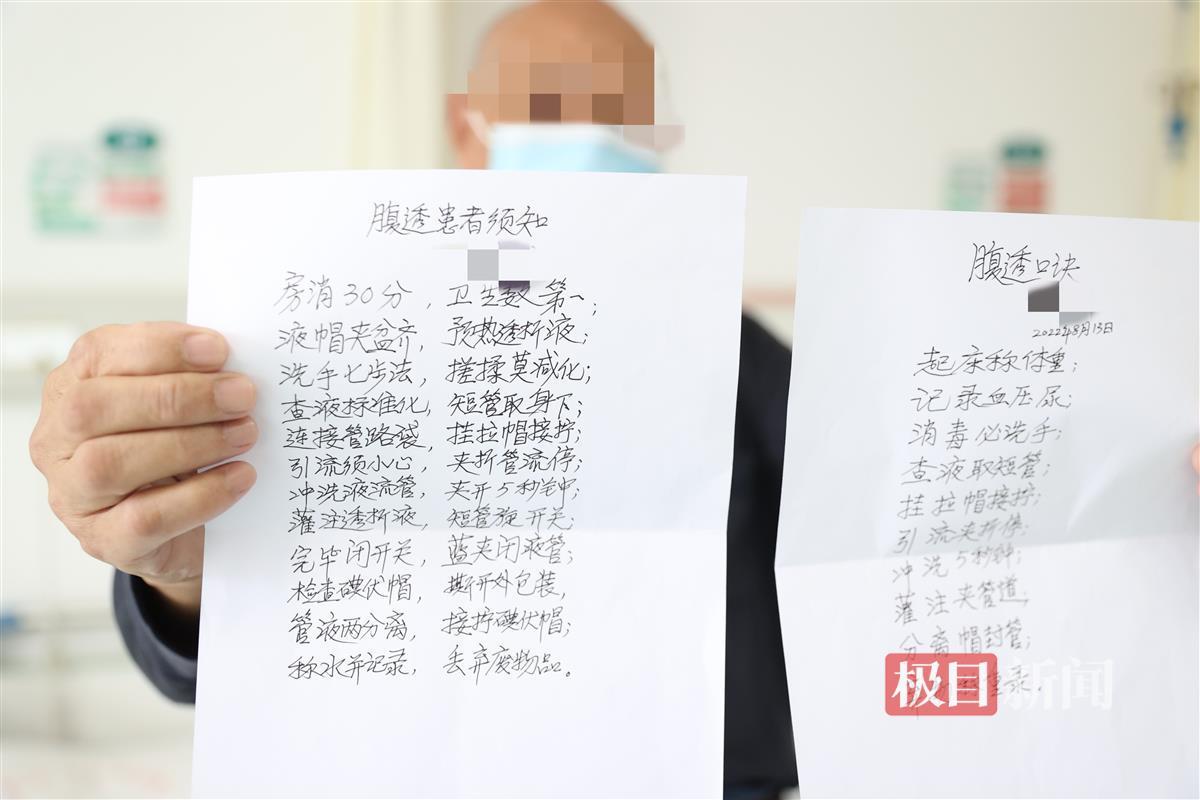 腹透患者须知
房消30分，卫生数第一；
液帽夹盆齐，预热透析液；
洗手七步法，搓揉莫减化；
查液标准化，短管取身下；
连接管路袋，挂拉帽接拧；
引流须小心，夹折管流停；
冲洗液流管，夹开5秒钟；
灌注透析液，短管旋开关；
完毕闭开关，蓝夹闭液管；
检查碘伏帽，撕开外包装，
管液两分离，接拧碘伏帽；
称水并记录，丢弃废物品。
腹透口诀
2022年8月13日
起床称体重；
记录血压尿；
消毒必洗手；
查液取短管；
挂拉帽接拧；
引流夹折停；
冲洗5秒钟；
灌注夹管道；
分离帽封管；
录。
极目新闻